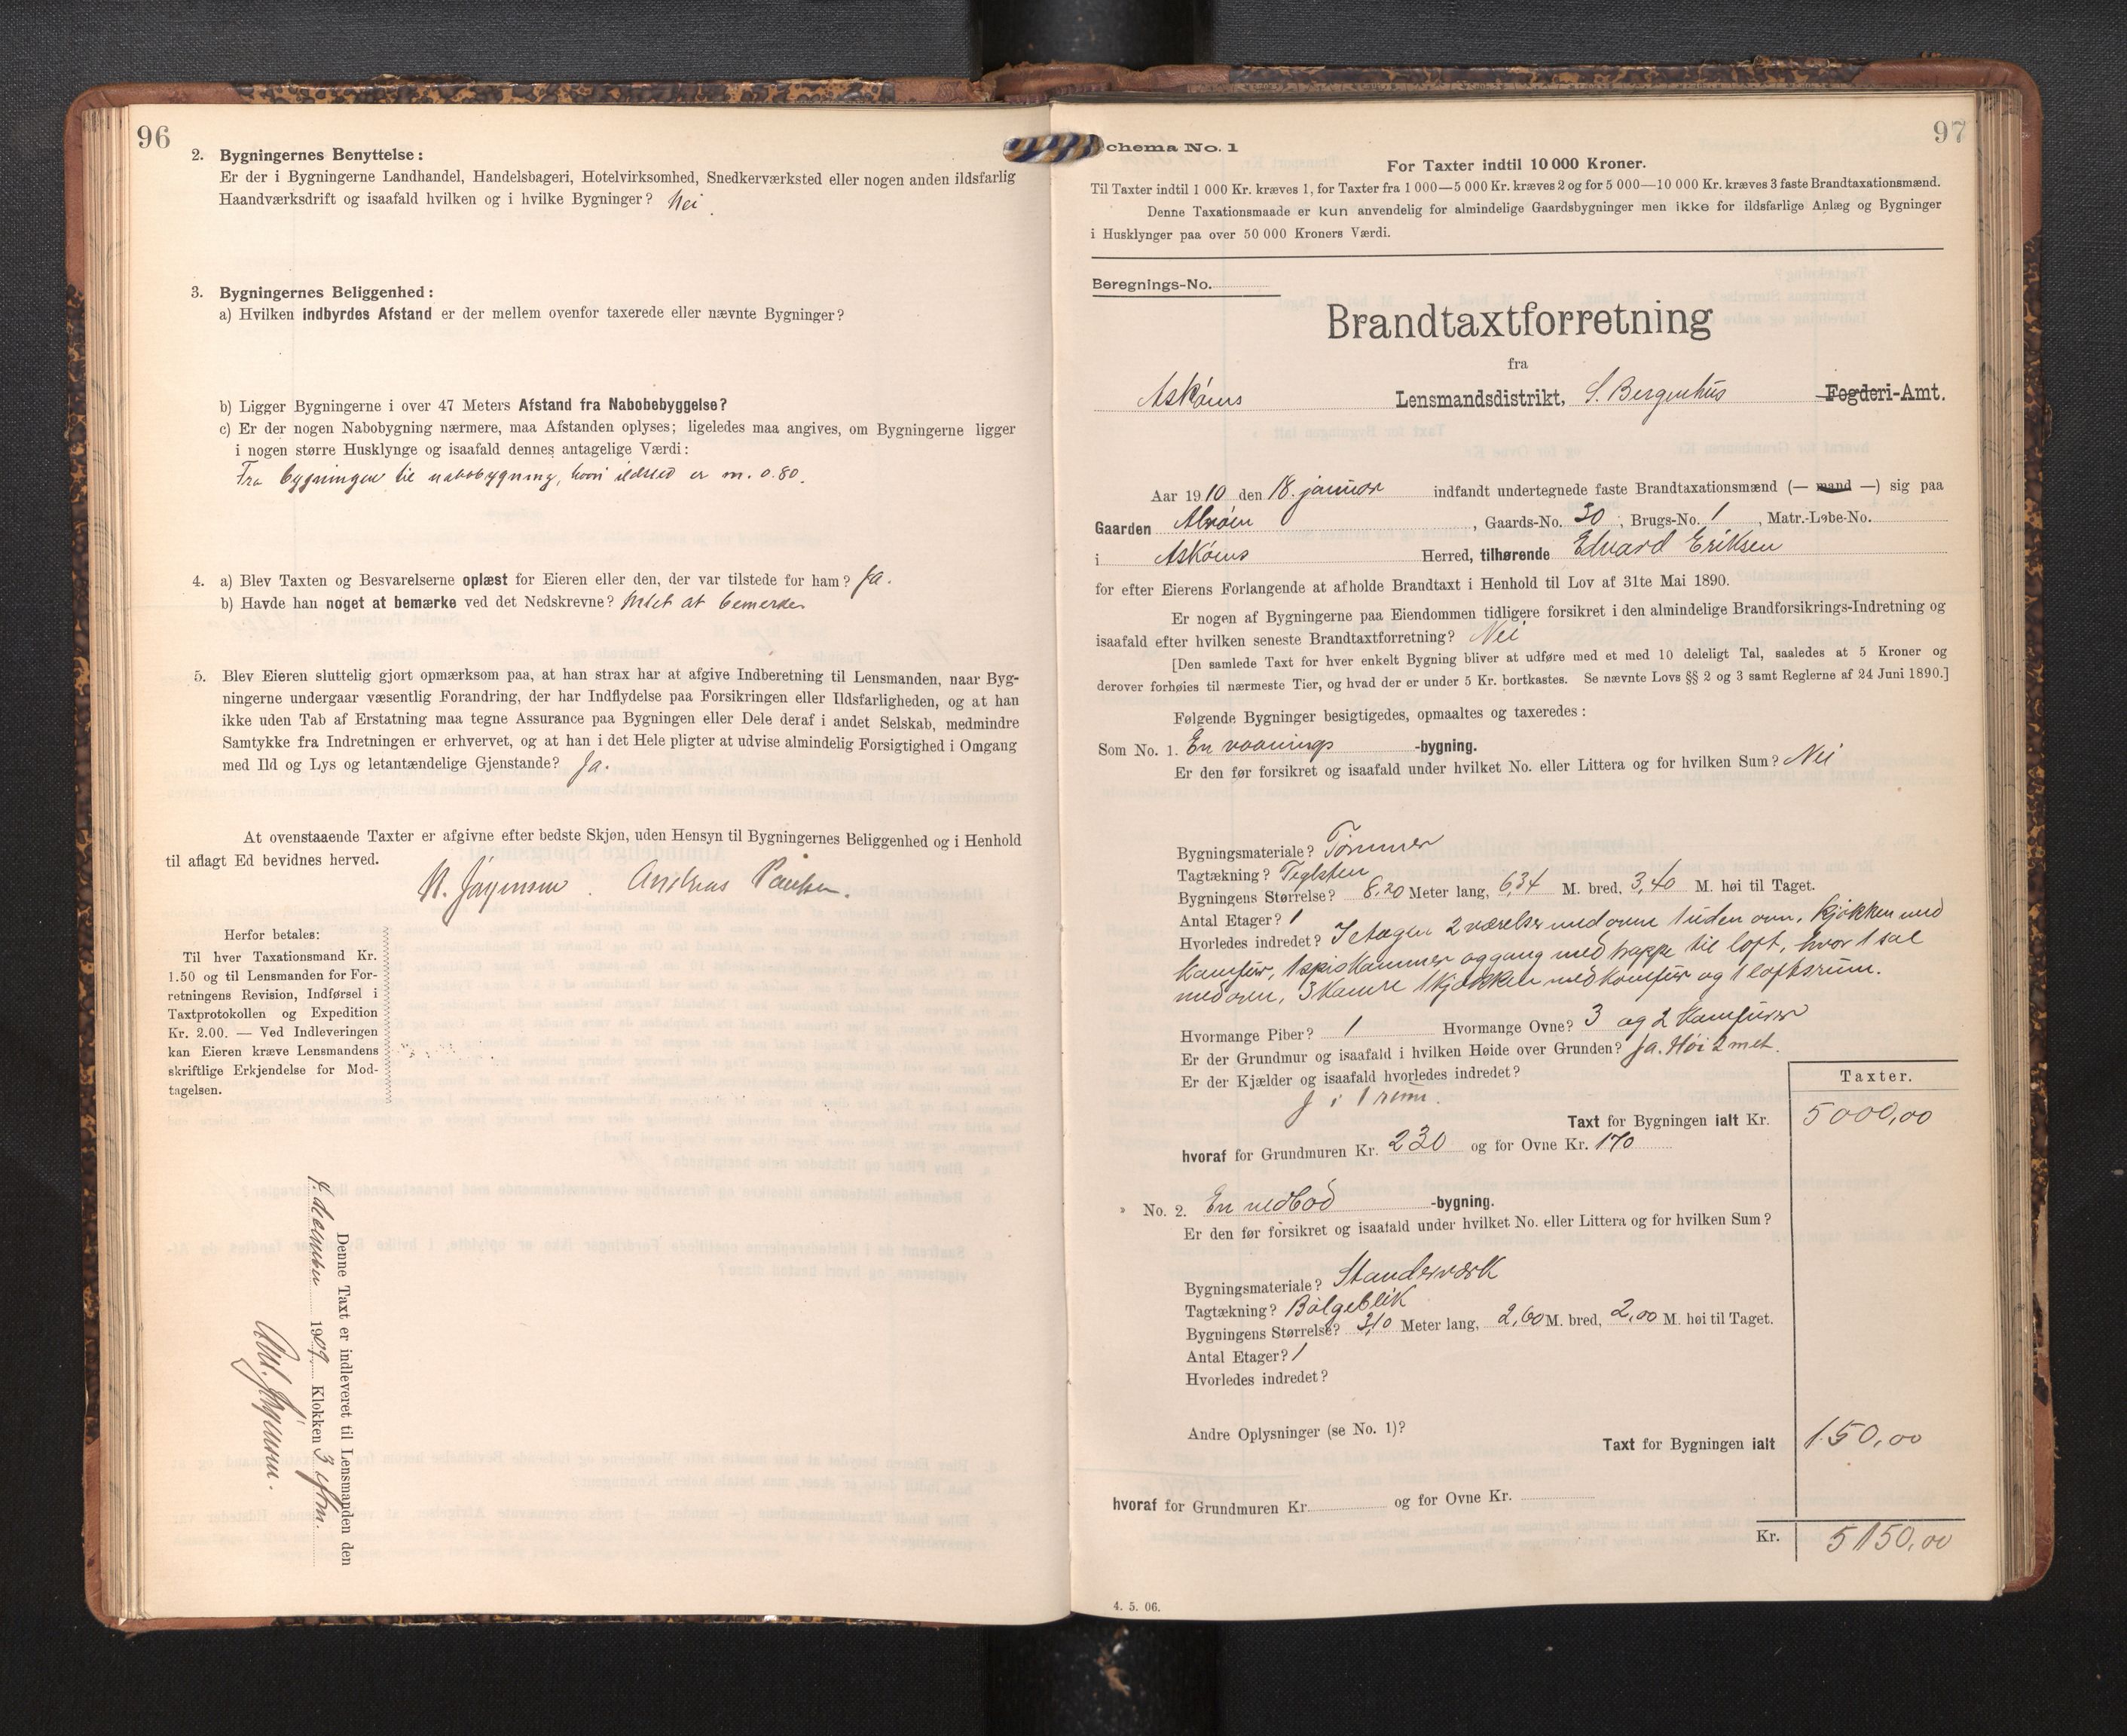 96
2. Bygningernes Benyttelse:
Er der i Bygningerne Landhandel, Handelsbageri, Hotelvirksomhed, Snedkerværksted eller nogen anden ildsfarlig
Haandværksdrift og isaafald hvilken og i hvilke Bygninger? Nei.
3. Bygningernes Beliggenhed:
a) Hvilken indbyrdes Afstand er der mellem ovenfor taxerede eller nævnte Bygninger?
b) Ligger Bygningerne i over 47 Meters Afstand fra Nabobebyggelse?
c) Er der nogen Nabobygning nærmere, maa Afstanden oplyses; ligeledes maa angives, om Bygningerne ligger
i nogen større Husklynge og isaafald dennes antagelige Værdi:
Fra bygningen til nabobygning, hvori ildsted er m. 0.80.
4. a) Blev Taxten og Besvarelserne oplæst for Eieren eller den, der var tilstede for ham? Ja.
b) Havde han noget at bemærke ved det Nedskrevne? Intet at bemerke
5. Blev Eieren sluttelig gjort opmærksom paa, at han strax har at afgive Indberetning til Lensmanden, naar Byg-
ningerne undergaar væsentlig Forandring, der har Indflydelse paa Forsikringen eller Ildsfarligheden, og at han
ikke uden Tab af Erstatning maa tegne Assurance paa Bygningen eller Dele deraf i andet Selskab, medmindre
Samtykke fra Indretningen er erhvervet, og at han i det Hele pligter at udvise almindelig Forsigtighed i Omgang
med Ild og Lys og letantændelige Gjenstande? Ja.
At ovenstaaende Taxter er afgivne efter bedste Skjøn, uden Hensyn til Bygningernes Beliggenhed og i Henhold
til aflagt Ed bevidnes herved.
N. Jørgensen. Andreas Paulsen.
Herfor betales:
Til hver Taxationsmand Kr.
1.50 og til Lensmanden for For-
retningens Revision, Indførsel i
Taxtprotokollen og Expedition
Kr. 2.00. — Ved Indleveringen
kan Eieren kræve Lensmandens
skriftlige Erkjendelse for Mod-
tagelsen.
Denne Taxt er indleveret til Lensmanden den
4. december 1909. Klokken 3 eftm.
97
chema No. 1
For Taxter indtil 10 000 Kroner.
Til Taxter indtil 1 000 Kr. kræves 1, for Taxter fra 1 000—5 000 Kr. kræves 2 og for 5 000—10 000 Kr. kræves 3 faste Brandtaxationsmænd.
Denne Taxationsmaade er kun anvendelig for almindelige Gaardsbygninger men ikke for ildsfarlige Anlæg og Bygninger
i Husklynger paa over 50 000 Kroners Værdi.
Beregnings-No.
Brandtaxtforretning
fra
Askøens Lensmandsdistrikt, S. Bergenhus Fogderi-Amt.
Aar 1910 den 18. januar indfandt undertegnede faste Brandtaxationsmænd (— mand —) sig paa
Gaarden Alvøen, Gaards-No. 30, Brugs-No. 1, Matr.-Løbe-No.
i Askøens Herred, tilhørende Edvard Eriksen
for efter Eierens Forlangende at afholde Brandtaxt i Henhold til Lov af 31te Mai 1890.
Er nogen af Bygningerne paa Eiendommen tidligere forsikret i den almindelige Brandforsikrings-Indretning og
isaafald efter hvilken seneste Brandtaxtforretning? Nei
[Den samlede Taxt for hver enkelt Bygning bliver at udføre med et med 10 deleligt Tal, saaledes at 5 Kroner og
derover forhøies til nærmeste Tier, og hvad der er under 5 Kr. bortkastes. Se nævnte Lovs §§ 2 og 3 samt Reglerne af 24 Juni 1890.]
Følgende Bygninger besigtigedes, opmaaltes og taxeredes:
Som No. 1. En vaanings -bygning.
Er den før forsikret og isaafald under hvilket No. eller Littera og for hvilken Sum? Nei
Bygningsmateriale? Tømmer
Tagtækning? Teglsten
Bygningens Størrelse? 8,20 Meter lang, 6,34 M. bred, 3,40 M. høi til Taget.
Antal Etager? 1
Hvorledes indredet? I etagen 2 værelser med ovne 1 uden ovn, kjøkken med
komfur, 1 spiskammer og gang med trappe til loft, hvor 1 sal
med ovn, 3 kamre 1 kjøkken med komfur og 1 loftsrum.
Hvormange Piber? 1 Hvormange Ovne? 3 og 2 komfurer
Er der Grundmur og isaafald i hvilken Høide over Grunden? Ja. Høi 2 met.
Er der Kjælder og isaafald hvorledes indredet?
J i 1 rum.
Taxter.
Taxt for Bygningen ialt Kr. 5000,00
hvoraf for Grundmuren Kr. 230 og for Ovne Kr. 170
» No. 2. En vedbod -bygning.
Er den før forsikret og isaafald under hvilket No. eller Littera og for hvilken Sum?
Bygningsmateriale? Standerværk
Tagtækning? Bølgeblik
Bygningens Størrelse? 3,10 Meter lang, 2,60 M. bred, 2,00 M. høi til Taget.
Antal Etager? 1
Hvorledes indredet?
Andre Oplysninger (se No. 1)?
Taxt for Bygningen ialt 150,00
hvoraf for Grundmuren Kr. og for Ovne Kr.
Kr. 5150,00
4. 5. 06.